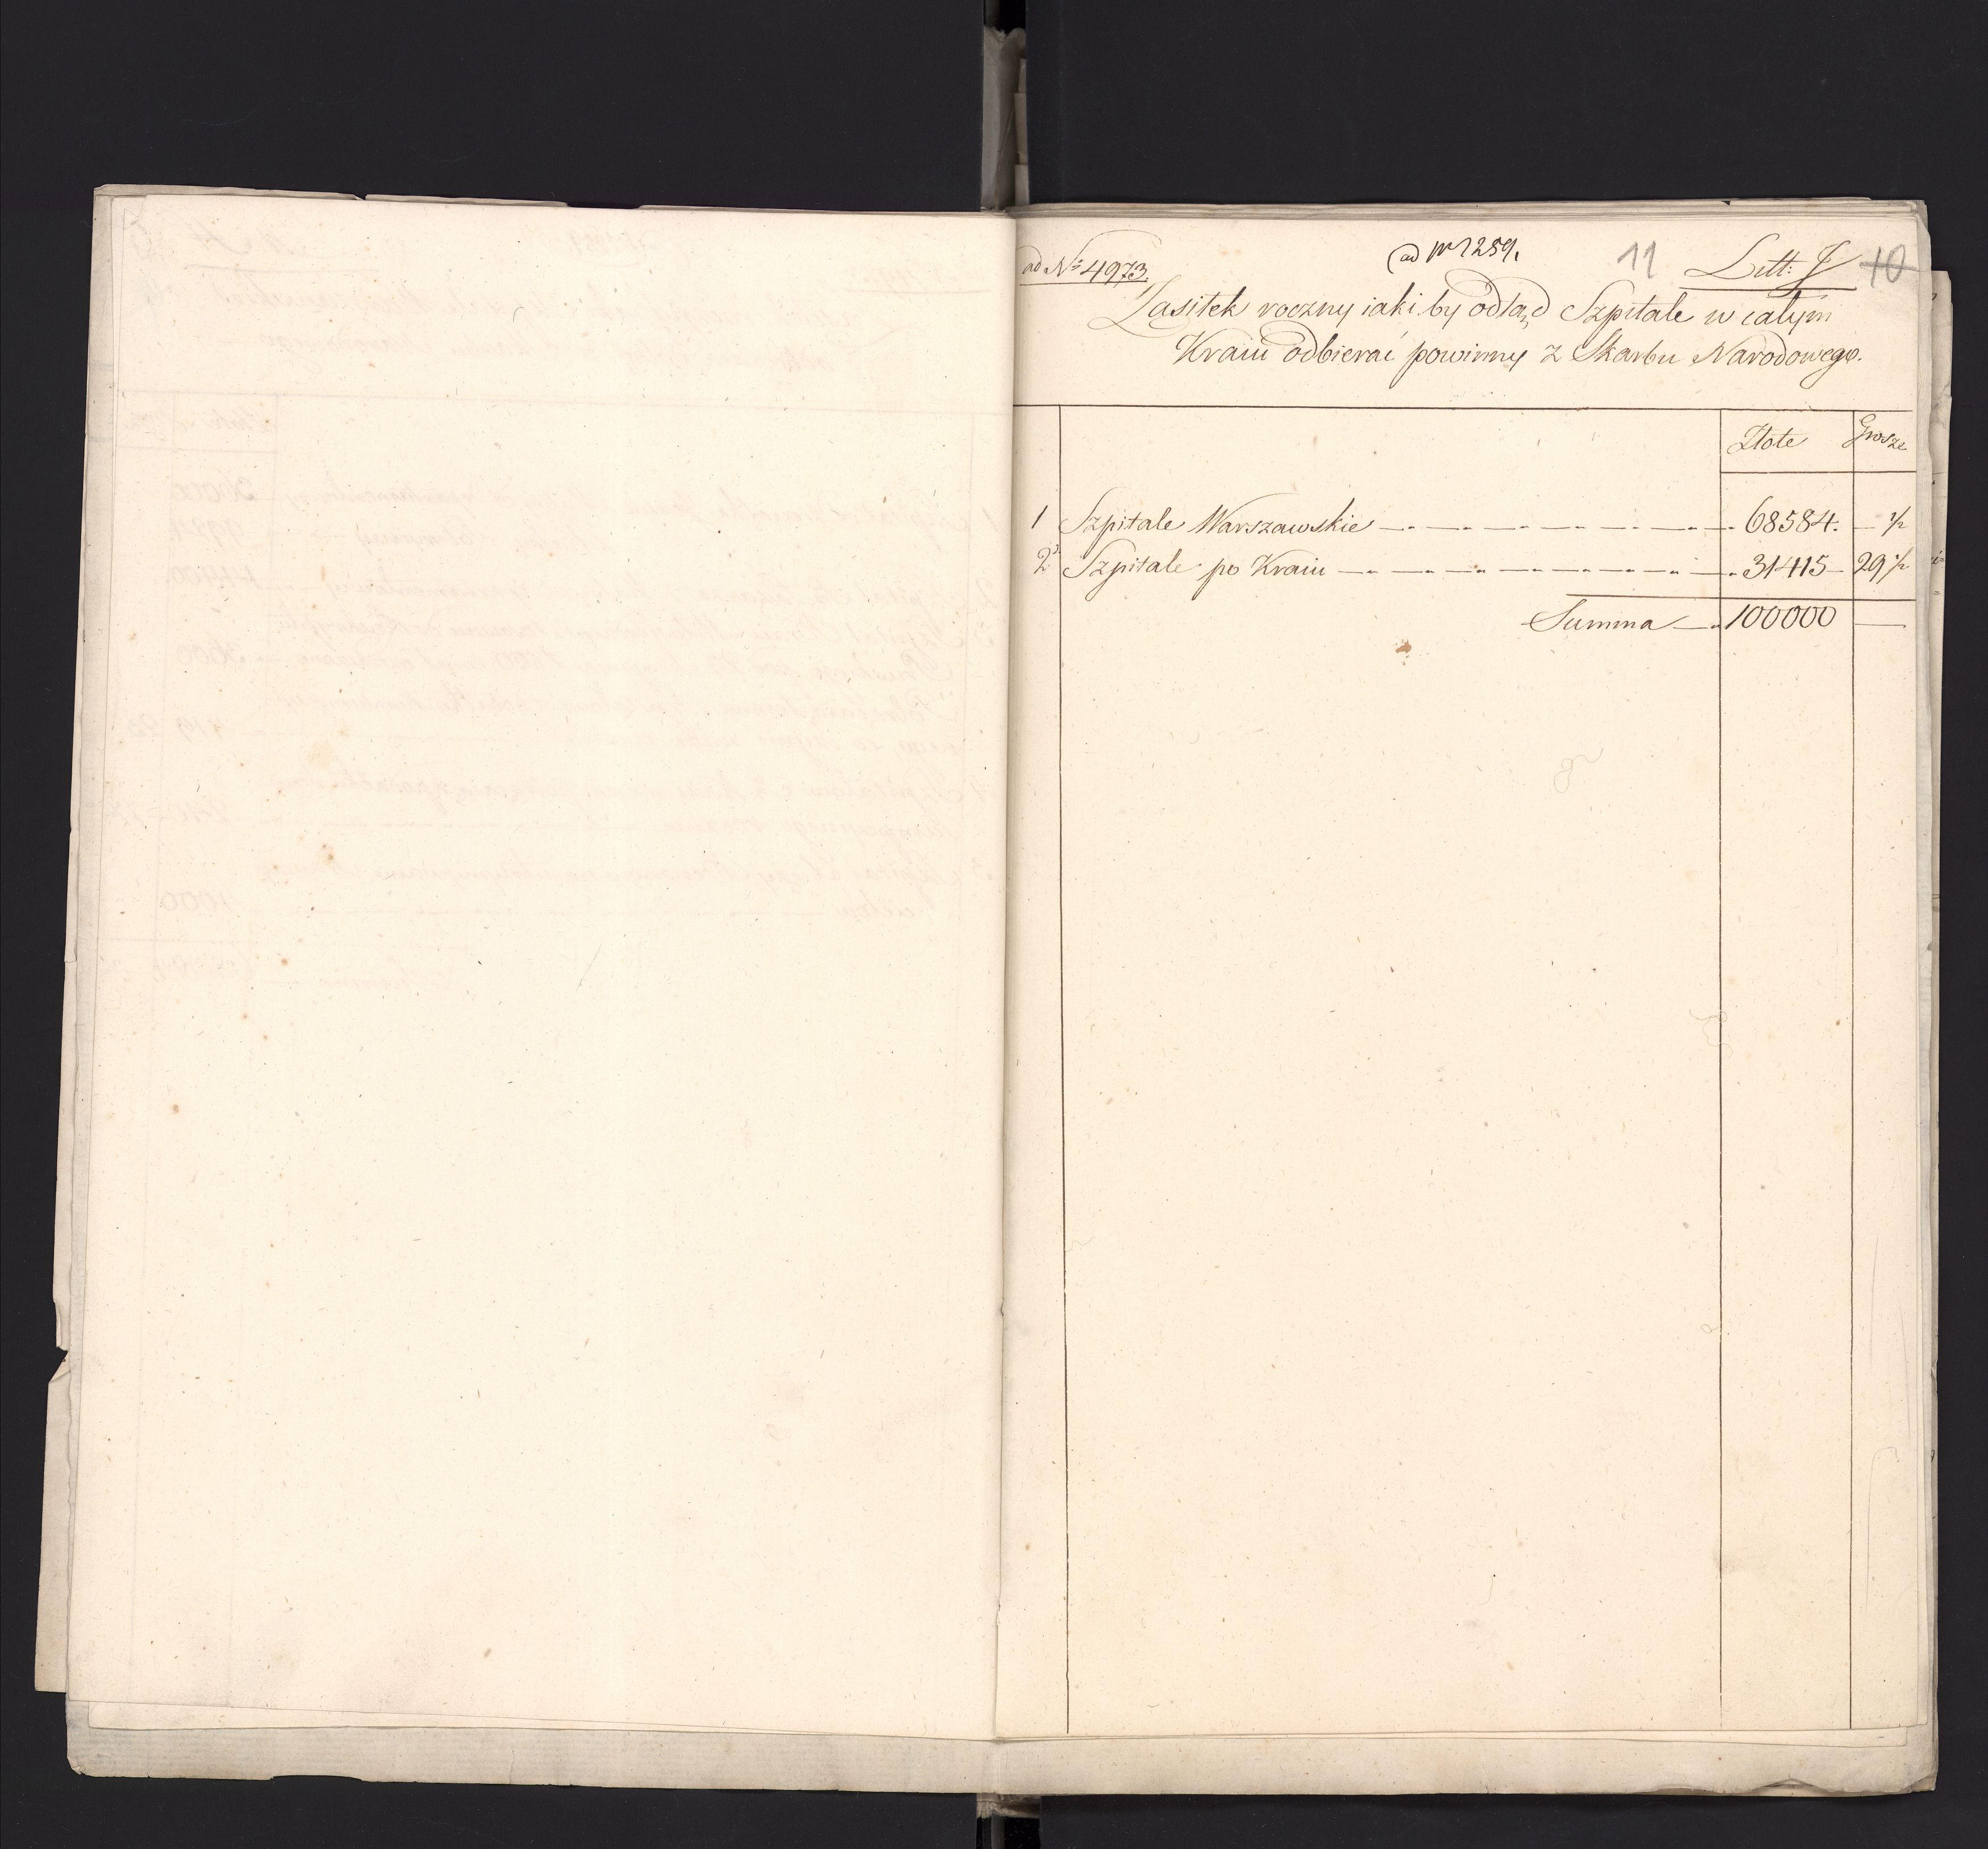 ad № 4973.
ad Nr 259.
11
Litt: J
10
Zasiłek roczny iaki by odtąd Szpitale w całym
Kraiu odbierać powinny z Skarbu Narodowego.
Złote Grosze
1 Szpitale Warszawskie 68584. — ½
2. Szpitale po Kraiu 31415 — 29 ½
Summa 100000 —